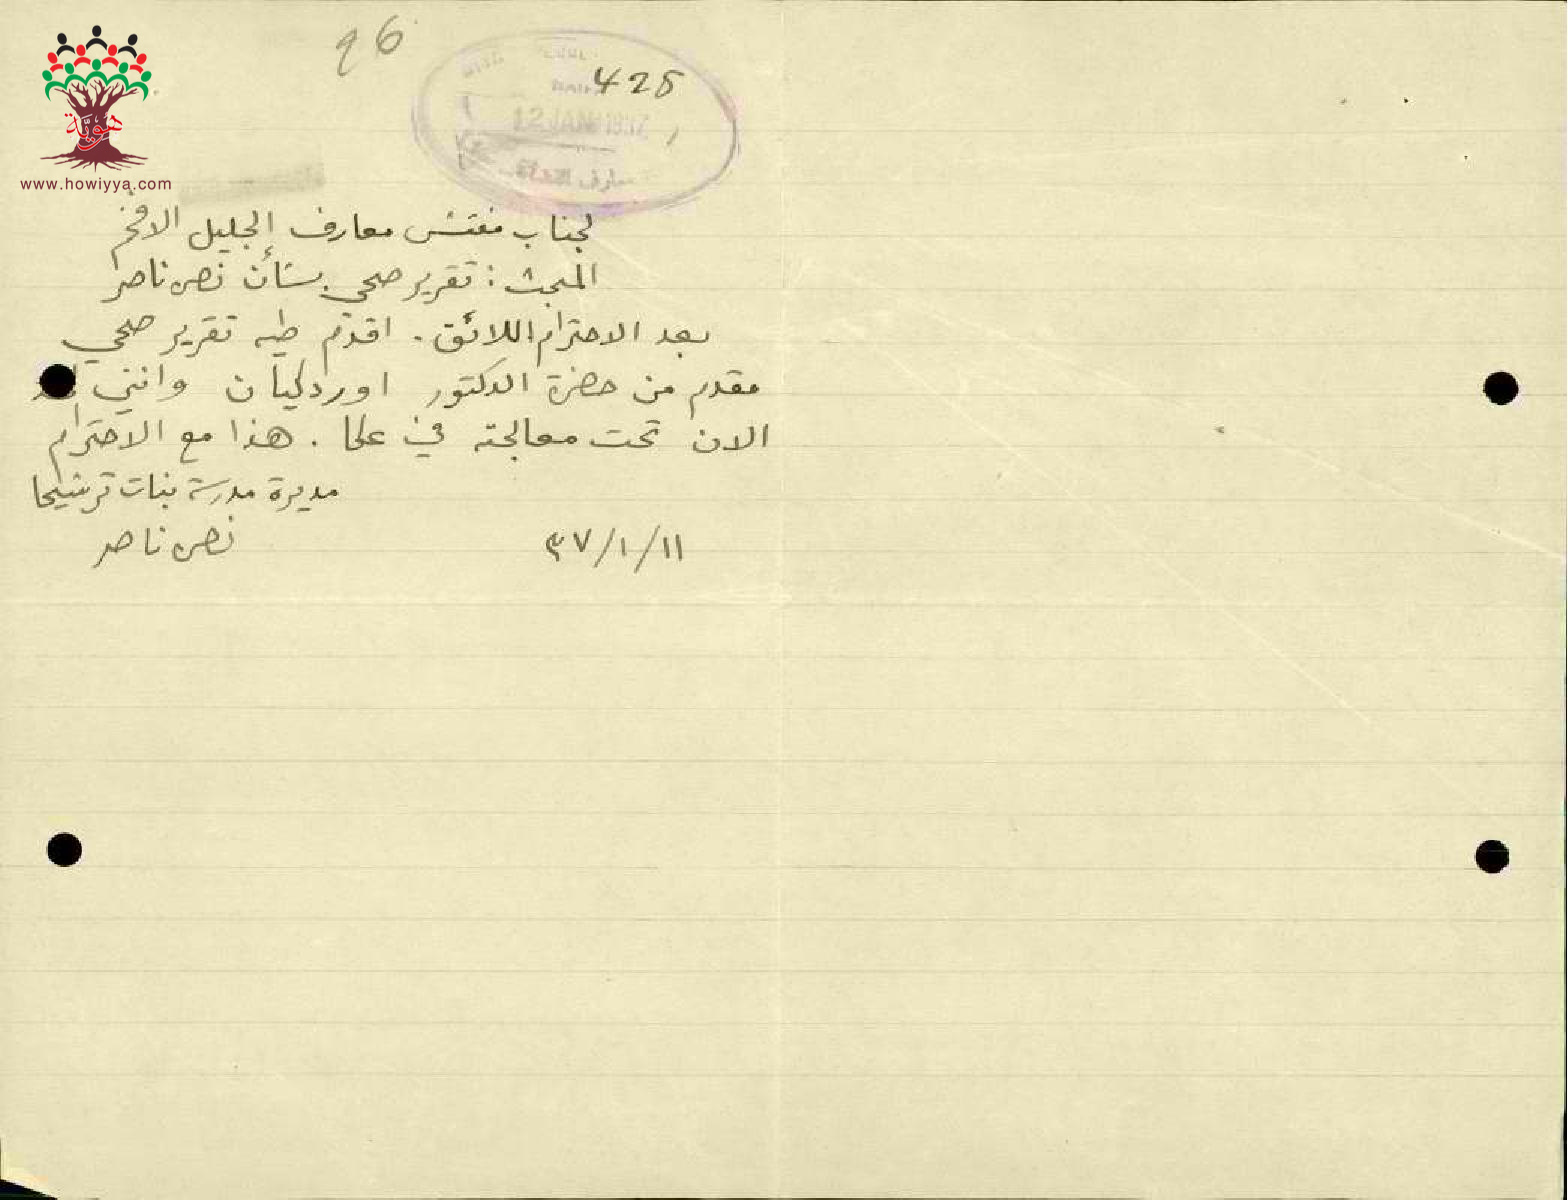 96
425
12 JAN 1937
معارف
هوية
www.howiyya.com
لجناب مفتش معارف الجليل الافخم
المبحث : تقرير صحي بشأن نصره ناصر
بعد الاحترام اللائق . اقدم طيه تقرير صحي
مقدم من حضرة الدكتور اوردليان وانني
الان تحت معالجته في عكا . هذا مع الاحترام
مديرة مدرسة بنات ترشيحا
نصره ناصر
٣٧/١/١١